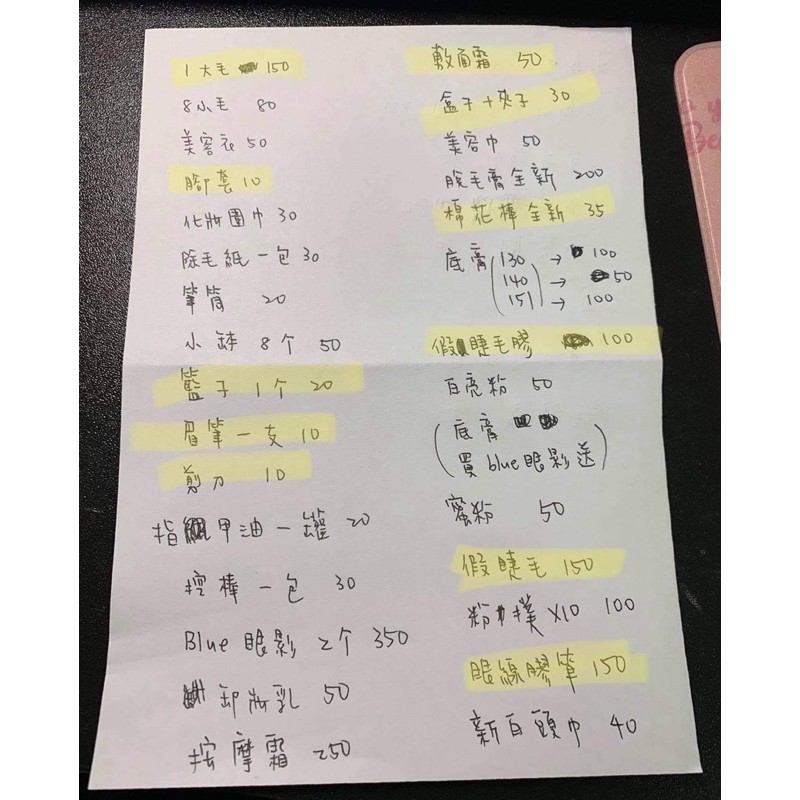 1大毛 150
8小毛 80
美容衣 50
腳套 10
化妝圍巾 30
除毛紙一包 30
筆筒 20
小缽8个 50
籃子1个 20
眉筆一支 10
剪刀 10
指甲油一罐 20
挖棒一包 30
Blue 眼影 2个 350
卸妝乳 50
按摩霜 250
敷面霜 50
盒子+夾子 30
美容巾 50
脫毛膏全新 200
棉花棒全新 35
底膏(130 → 100
140 → 50
151) → 100
假睫毛膠 100
百亮粉 50
(底膏
買blue眼影送)
蜜粉 50
假睫毛 150
粉撲x10 100
眼線膠筆 150
新白頭巾 40